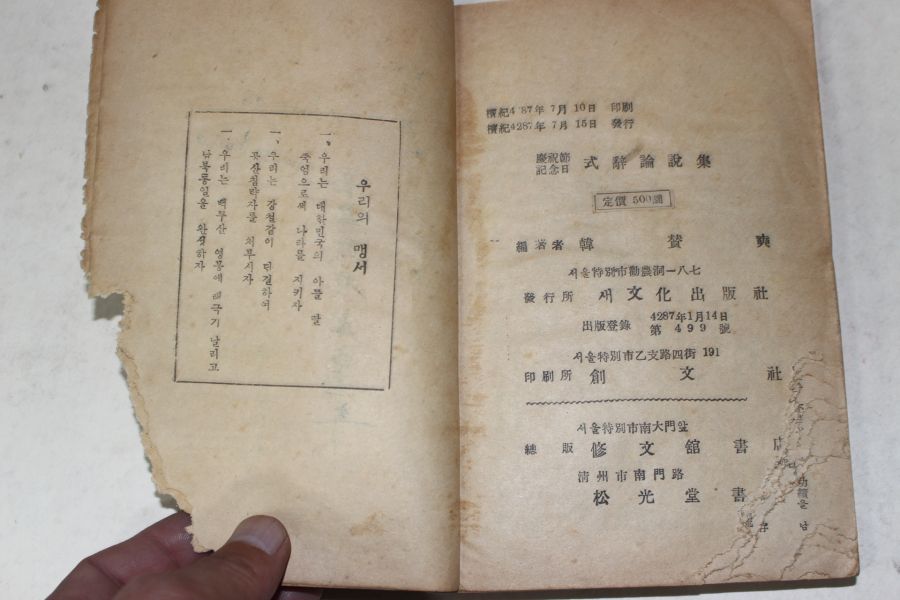 우리의 맹서
一、우리는 대한민국의 아들 딸
죽엄으로써 나라를 지키자
一、우리는 강철같이 단결하여
공산침략자를 처부시자
一、우리는 백두산 영봉에 태극기 날리고
남북통일을 완성하자
檀紀4287年 7月 10日 印刷
檀紀4287年 7月 15日 發行
慶祝節
記念日 式辭論說集
定價 500圜
編著者 韓賛奭
서울特別市勸農洞一八七
發行所 새文化出版社
出版登錄 4287年1月14日
第499號
서울特別市乙支路四街 191
印刷所 創文社
서울特別市南大門앞
總販 修文舘書店
淸州市南門路
松光堂書
功績을 남